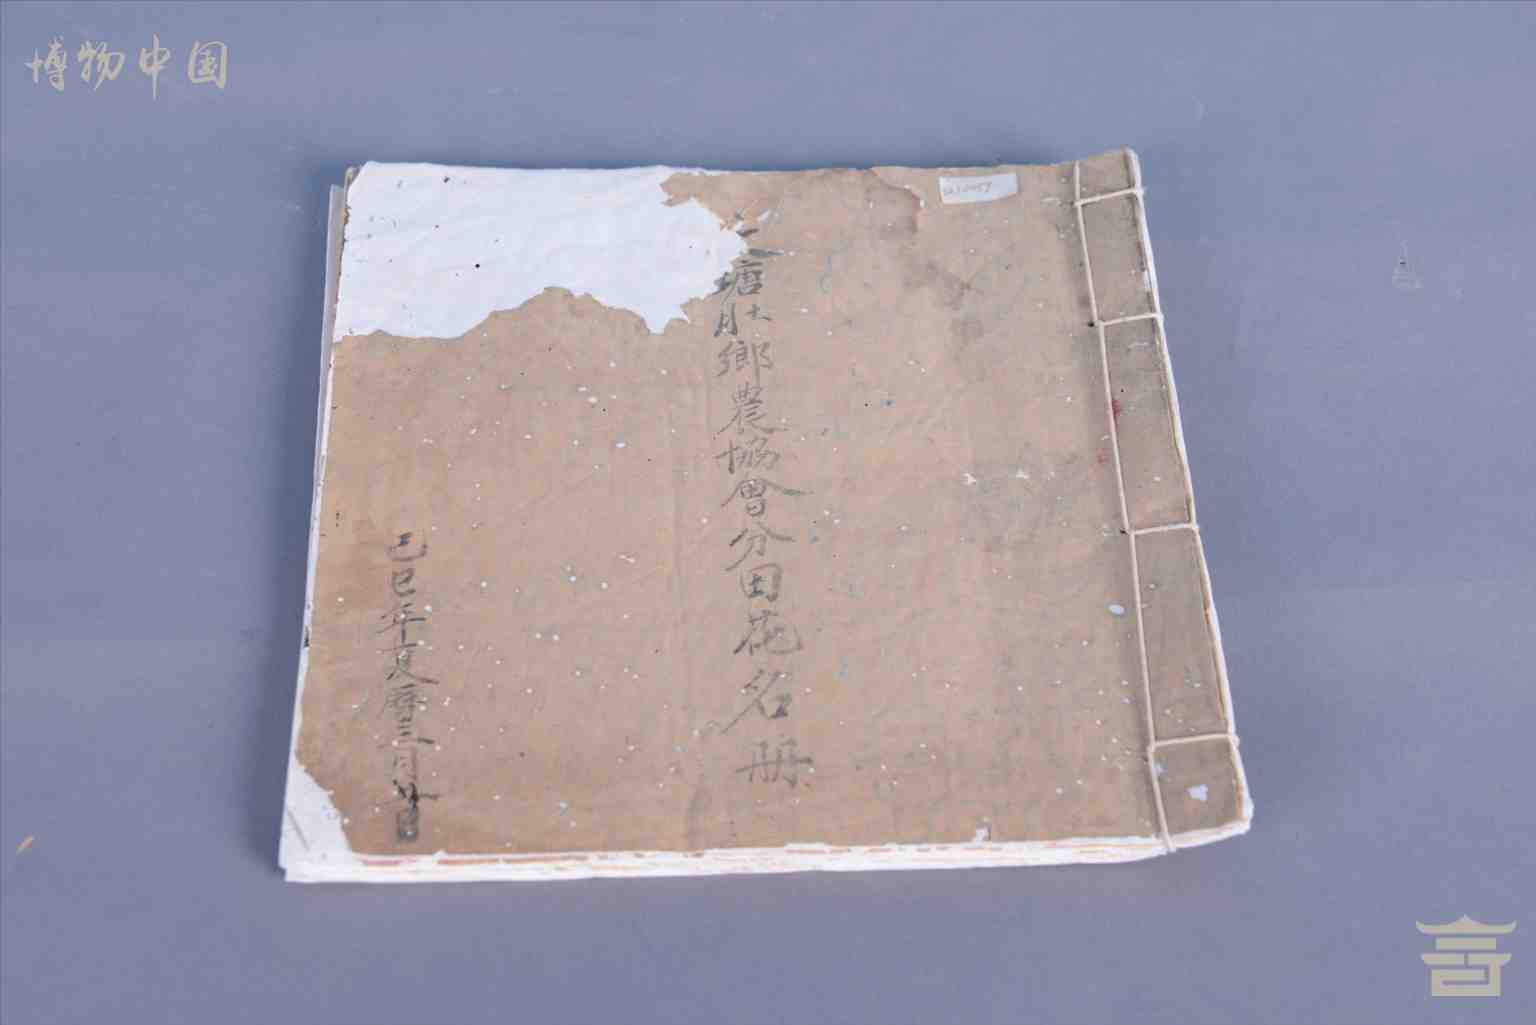 博物中国
塘壯鄉農協會分田花名册
己巳年夏曆三月廿日